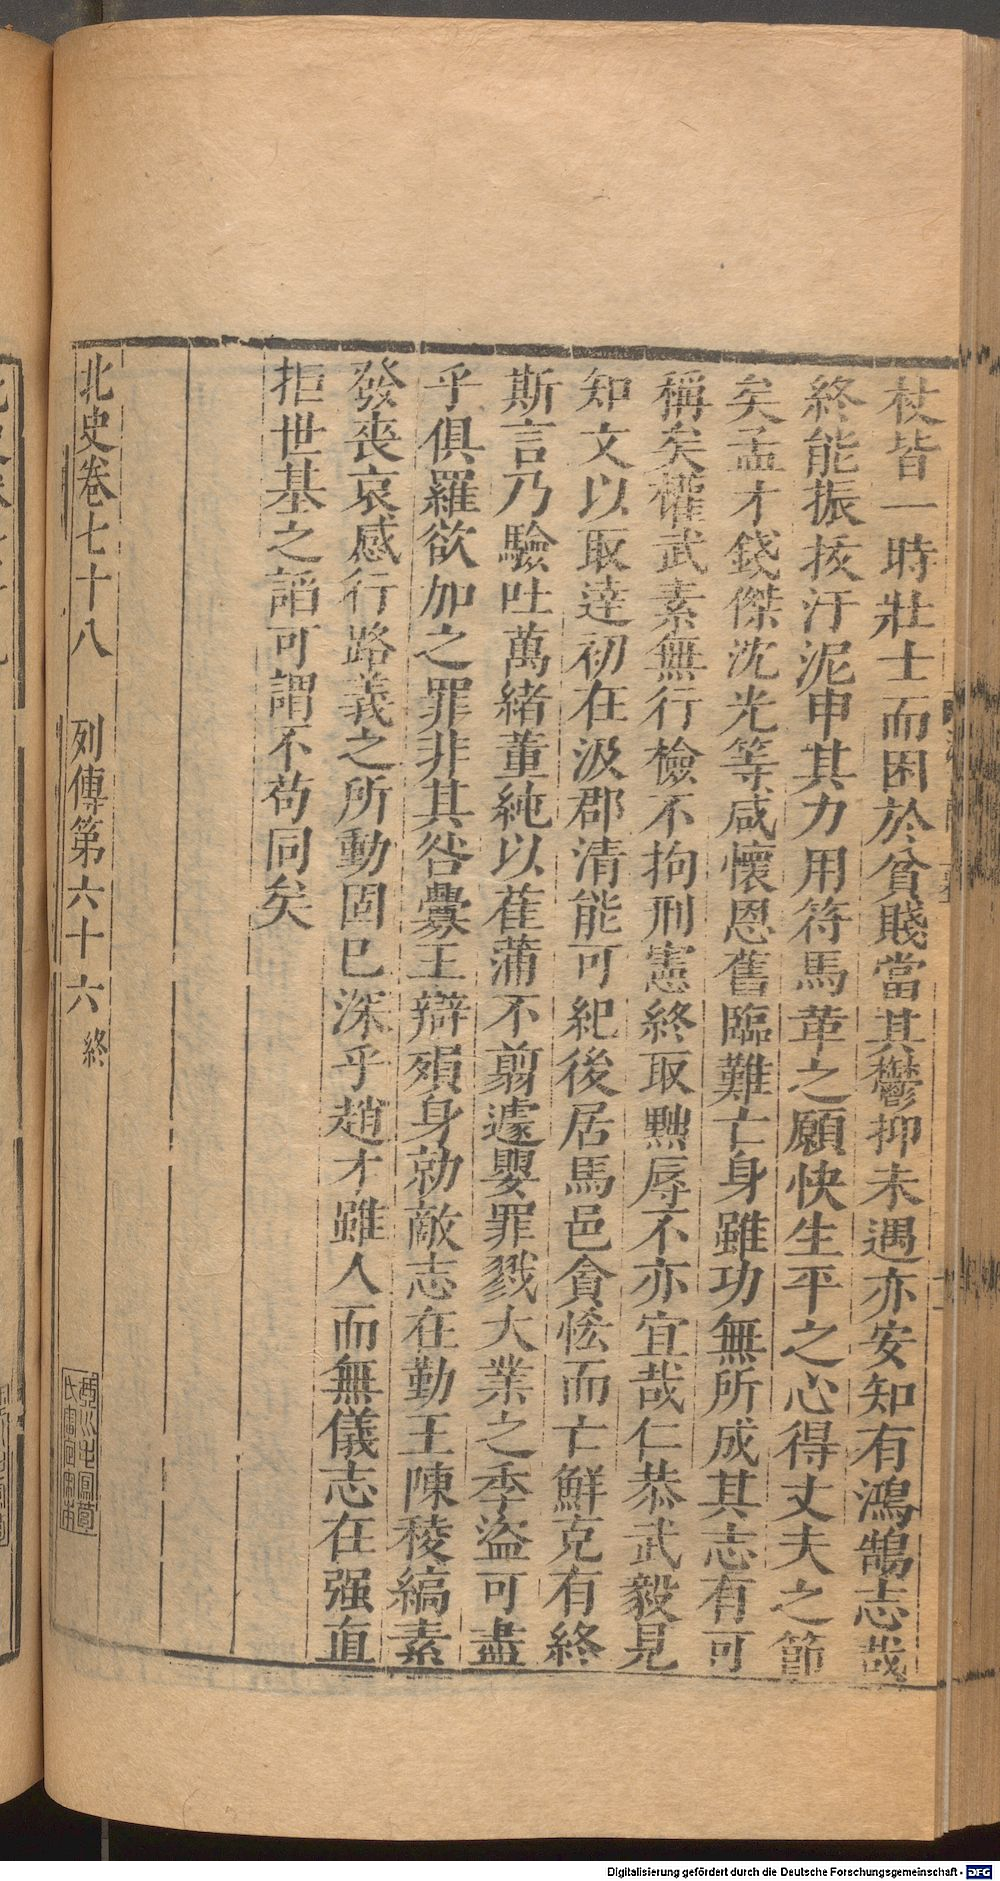 杖皆一時壯士而困於貧賤當其鬱抑未遇亦安知有鴻鵠志哉
終能振拔汙泥申其力用符馬革之願快生平之心得丈夫之節
矣孟才錢傑沈光等咸懷恩舊臨難亡身雖功無所成其志有可
稱矣權武素無行檢不拘刑憲終取黜辱不亦宜哉仁恭武毅見
知文以取達初在汲郡清能可紀後居馬邑貪恡而亡鮮克有終
斯言乃驗吐萬緒董純以萑蒲不翦遽嬰罪戮大業之季盜可盡
乎俱羅欲加之罪非其咎釁王辯殞身勍敵志在勤王陳稜縞素
發喪哀感行路義之所動固已深乎趙才雖人而無儀志在强直
拒世基之謟可謂不苟同矣
北史卷七十八 列傳第六十六 終
Digitalisierung gefördert durch die Deutsche Forschungsgemeinschaft - DFG